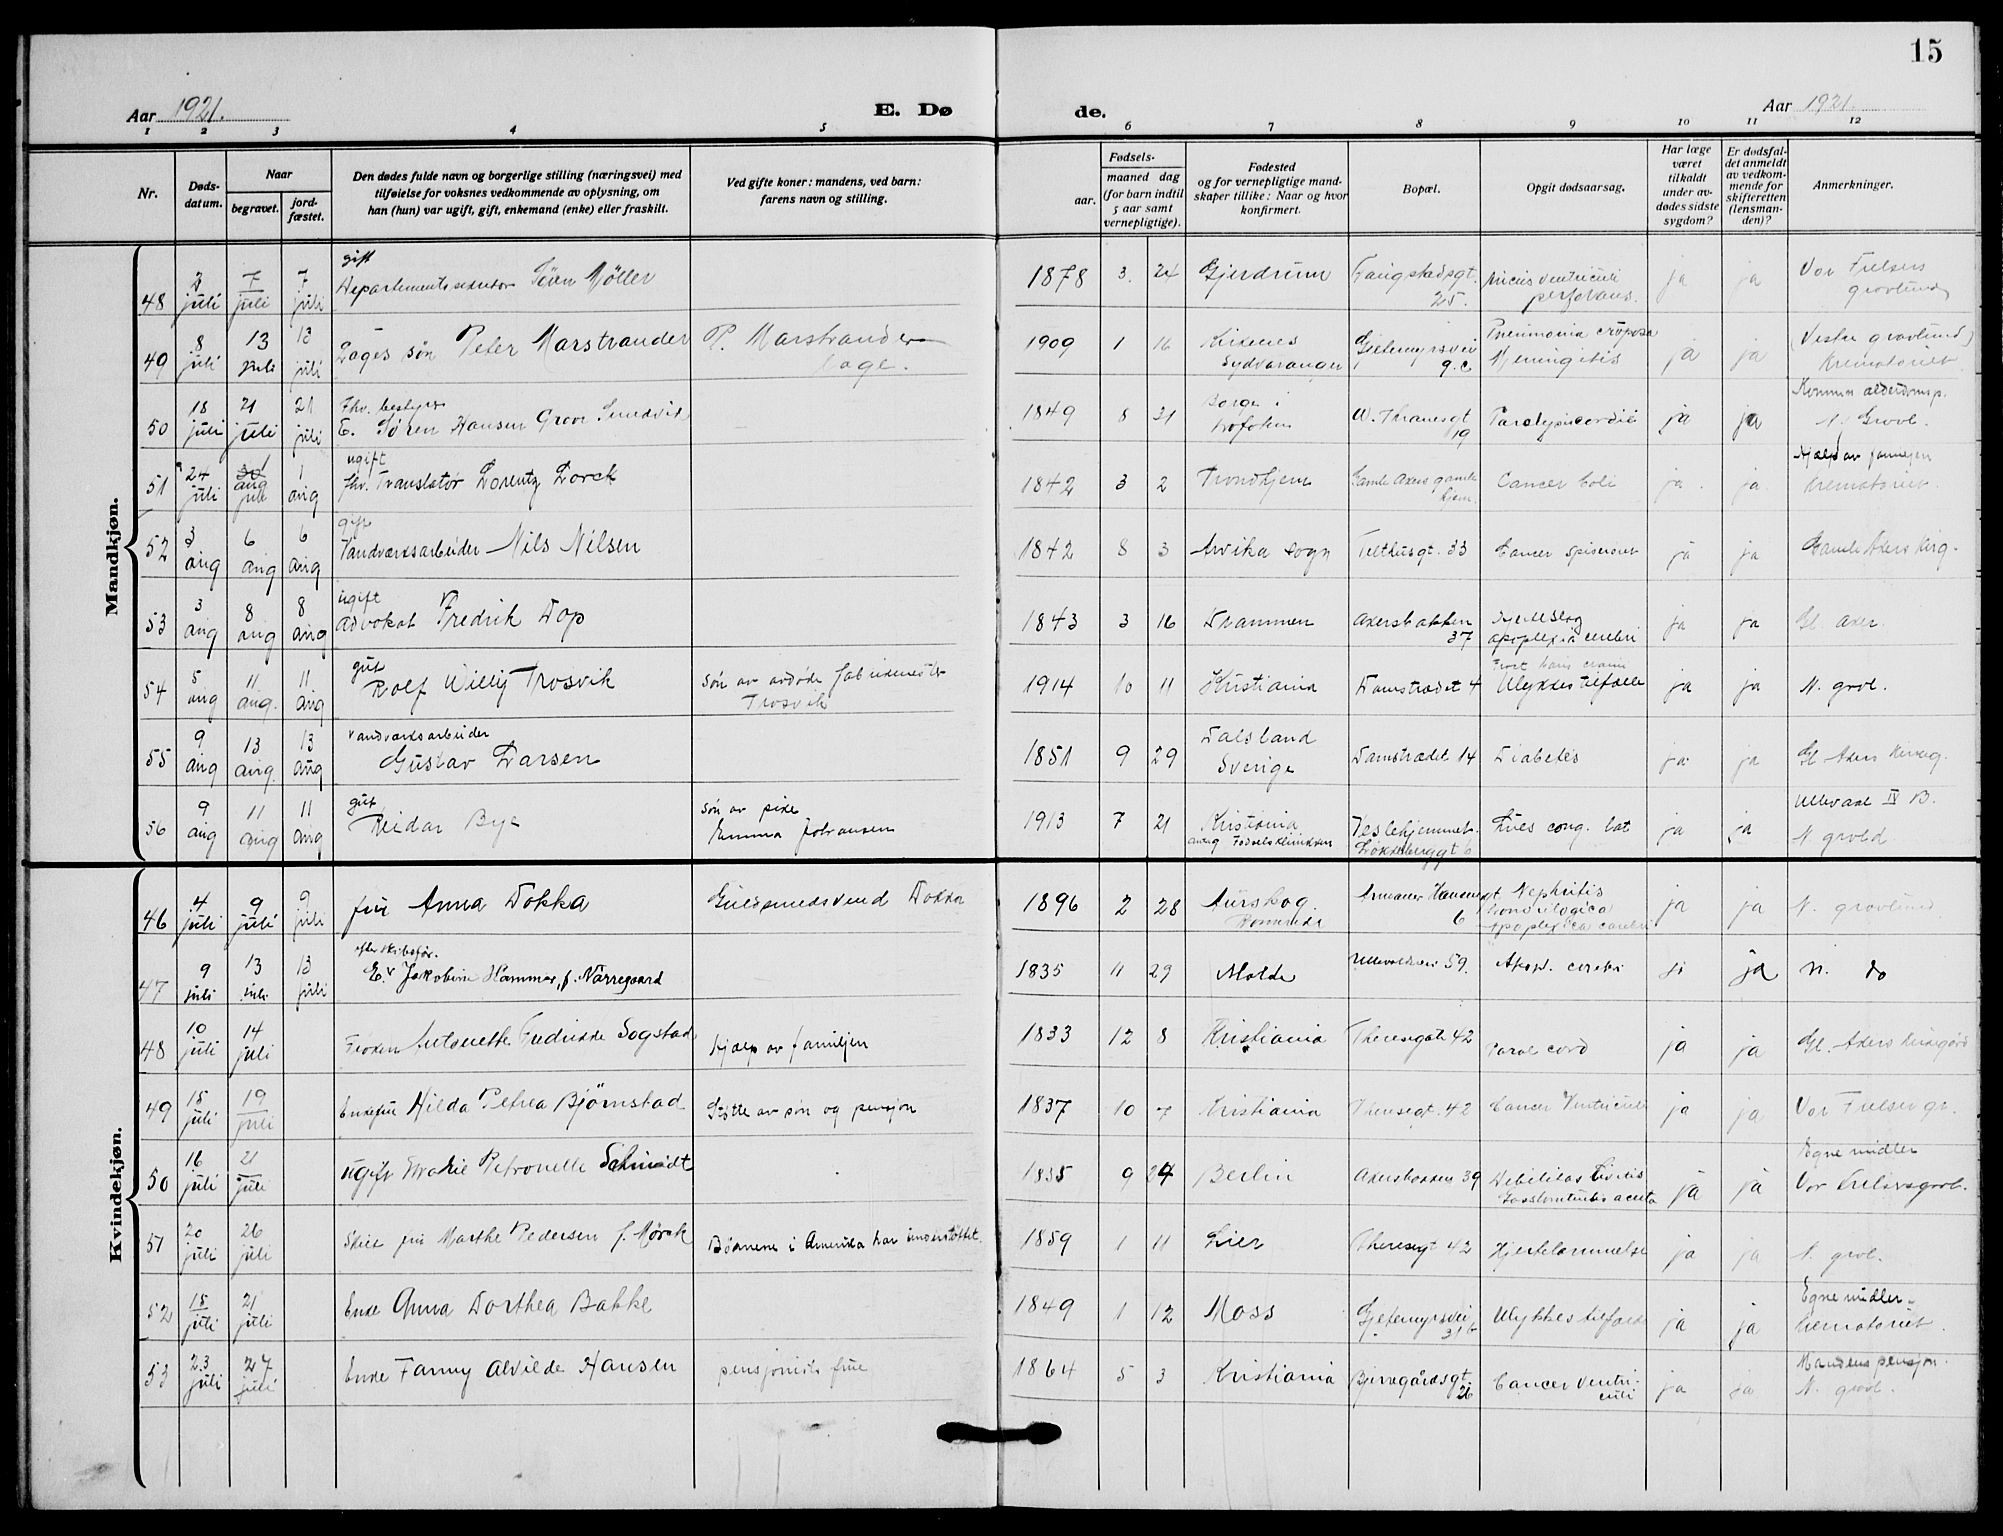 15
Aar 1921.
E. Dø
de.
Aar 1921.
1 2 3 4 5 6 7 8 9 10 11 12
Nr.
Døds-
datum.
Naar
begravet.
jord-
fæstet.
Den dødes fulde navn og borgerlige stilling (næringsvei) med
tilføielse for voksnes vedkommende av oplysning, om
han (hun) var ugift, gift, enkemand (enke) eller fraskilt.
Ved gifte koner: mandens, ved barn:
farens navn og stilling.
Fødsels-
aar.
maaned dag
(for barn indtil
5 aar samt
vernepligtige).
Fødested
og for vernepligtige mand-
skaper tillike: Naar og hvor
konfirmert.
Bopæl.
Opgit dødsaarsag.
Har læge
været
tilkaldt
under av-
dødes sidste
sygdom?
Er dødsfal-
det anmeldt
av vedkom-
mende for
skifteretten
(lensman-
den)?
Anmerkninger.
Mandkjøn.
gift
48 juli 7 juli 7 juli Møller 1878 3. 24 Gjerdrum 25. ulcus ventriculi perforans. ja ja Vor Frelsers gravlund
49 8 juli 13 juli 13 juli Læges søn Peter Marstrander P. Marstrander læge. 1909 1 16 Kirkenes Sydvaranger Gjetemyrsvei 9.c Pneumonia cruposa Meningitis ja ja (Vestre gravlund) Krematoriet
50 18 juli 21 juli 21 juli Fhv. bestyrer E. Søren Hansen 1849 8 31 Borge i Lofoten W. Thranesgt 19 Paralysis cordis ja ja N. Gravl.
51 24 juli 1 aug ugift fhv. Translatør Lorentz Lorck 1842 3 2 Trondhjem Gamle Akers gamlehjem. Cancer Coli ja ja Hjælp av familjen Krematoriet
52 3 aug 6 aug 6 aug gift Vandværksarbeider Nils Nilsen 1842 8 3 Arvika sogn Telthusgt. 33 Cancer spiserøret ja ja Gamle Akers kirg.
53 3 aug 8 aug 8 aug ugift Advokat Fredrik Dop 1843 3 16 Drammen Akersbakken 37 apoplexia cerebri ja ja Gl. Aker.
54 5 aug 11 aug. 11 aug gut Rolf Willy Trosvik Søn av avdøde Trosvik 1914 10 11 Kristiania Damstrædet 4 Fract. basis cranii Ulykkestilfælle ja ja N. grvl.
55 9 aug 13 aug. 13 aug Vandværksarbeider Gustav Larsen 1851 9 29 Dalsland Sverige Damstrædet 14 Diabetes ja ja Gl. Akers kirkeg.
56 9 aug 11 aug 11 aug gut Reidar Bye Søn av pike Emma Johansen 1913 7 21 Kristiania Fødselsklinikken Veslehjemmet Løkkeberggt 6 Lues cong. lat ja ja Ullevaal IV B. N gravl
Kvindekjøn.
46 4 juli 9 juli 9 juli fru Anna Dokka Guldsmedsvend Dokka 1896 2 28 Aurskog Romerike Armauer Hansensgt 6 Nephritis ja ja N. gravlund
47 9 juli 13 juli 13 juli efter skibsfør. E. Jakobine Hammer, f. Nørregaard 1835 11 29 Molde Ullevoldsvei 59. Apop. cerebri ja ja N. do
48 10 juli 14 juli Frøken Antonette Fredrikke Sogstad Hjælp av familjen 1833 12 8 Kristiania Theresegate 42 Paral cord ja ja Gl. Akers kirkegård
49 15 juli 19 juli Enkefru Hilda Petrea Bjørnstad Støtte av søn og pensjon 1837 10 7 Kristiania Theresegt. 42 Cancer Ventriculi ja ja Vor Frelser gr.
50 16 juli 21 juli ugift Petronelle Schmidt 1835 9 24 Berlin Akersbakken 39 Debilitas acuta ja ja Egne midler Vor Frelsersgravl.
51 20 juli 26 juli Skilt fru Marthe Pedersen f. Mørch Børnene i Amerika har understøttet. 1859 1 11 Lier Theresegt 42 Hjertelammelse ja ja N. gravl.
52 18 juli 21 juli Enke Anna Dorthea Bakke 1849 1 12 Moss Gjetemyrsvei Ulykkestilfælde ja ja Egne midler. Krematoriet.
53 23 juli 27 juli Enke Fanny Alvilde Hansen pensjonists frue 1864 5 3 Kristiania Bjerregårdsgt. 26 Cancer Ventriculi ja ja Mandens pensjon. N. gravl.